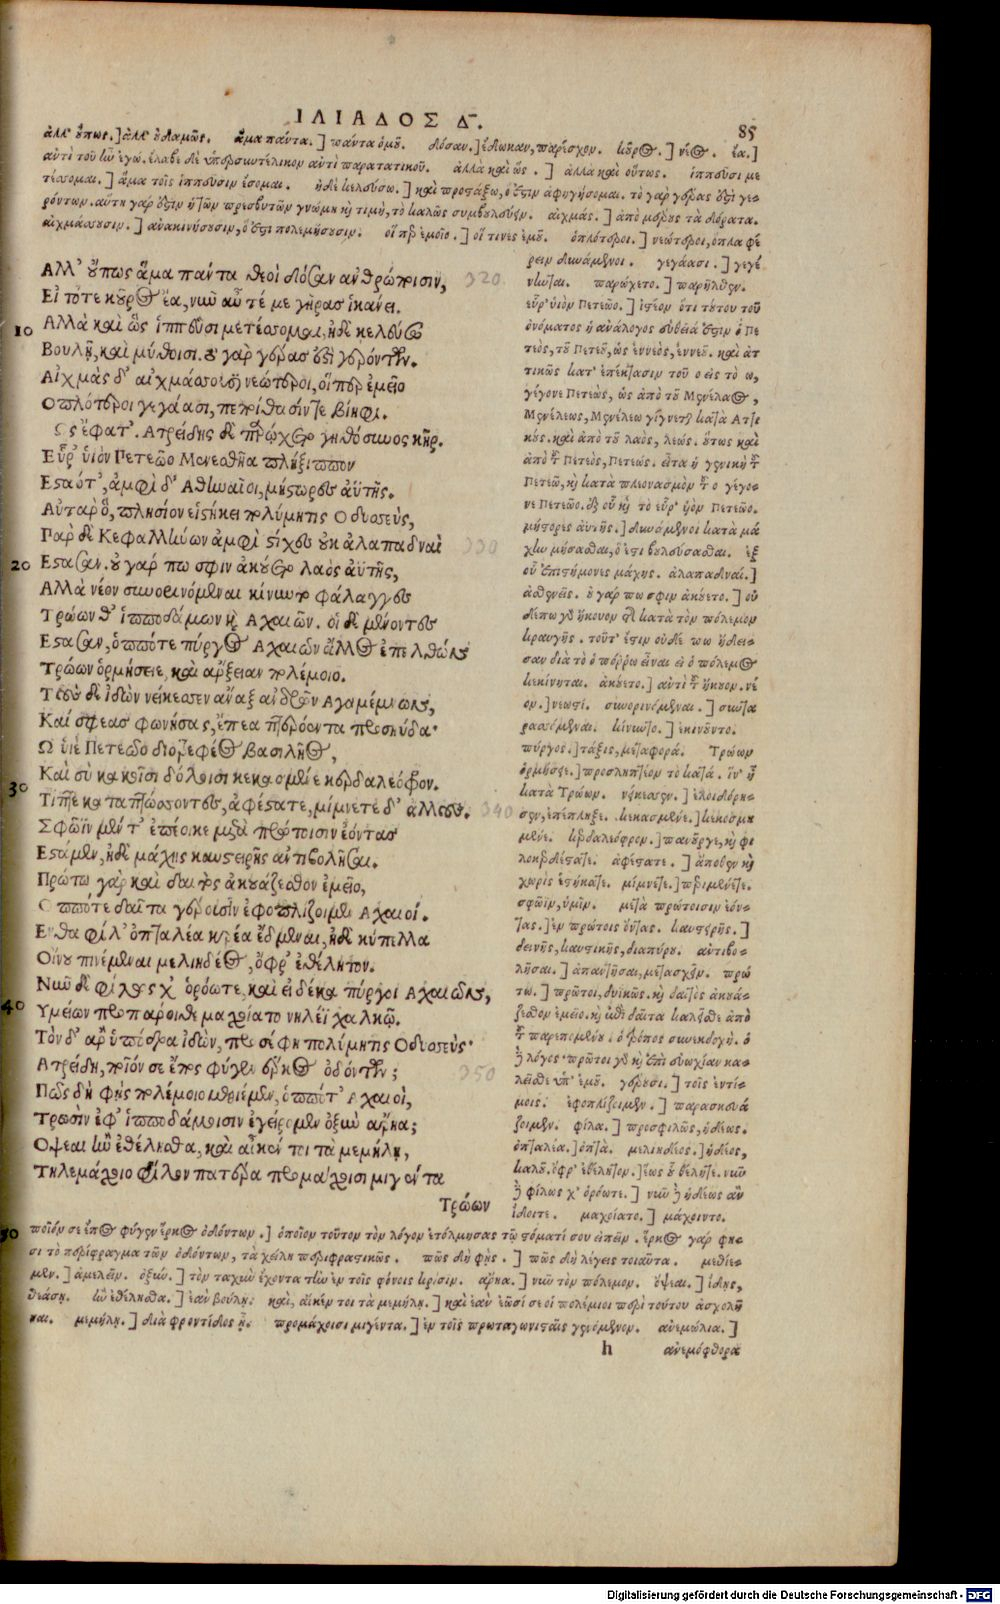 ΙΛΙΑΔΟΣ Δ.
85
ἀλλ' οὔπως.] ἀλλ' οὐδαμῶς. ἅμα πάντα.] πάντα ὁμοῦ. δόσαν.] ἔδωκαν, παρέσχον. κοῦρος.] νέος. ἔα.]
ἀντὶ τοῦ ἦν ἐγώ. ἔλαβε δὲ ὑπερσυντέλικον ἀντὶ παρατατικοῦ. ἀλλὰ καὶ ὥς.] ἀλλὰ καὶ οὕτως. ἱππεῦσι με
τέσομαι.] ἅμα τοῖς ἱππεῦσιν ἔσομαι. ἠδὲ κελεύσω.] καὶ προστάξω, ὅ ἐστιν ἀφηγήσομαι. τὸ γὰρ γέρας ἐστὶ γε-
ρόντων. αὕτη γάρ ἐστιν ἡ τῶν πρεσβυτῶν γνώμη καὶ τιμὴ, τὸ καλῶς συμβουλεύειν. αἰχμάς.] ἀπὸ μέρους τὰ δόρατα.
αἰχμάσουσιν.] ἀνακινήσουσιν, ὅ ἐστι πολεμήσουσιν. οἵ περ ἐμεῖο.] οἵ τινες ἐμοῦ. ὁπλότεροι.] νεώτεροι, ὅπλα φέ
Ἀλλ' οὔπως ἅμα πάντα θεοὶ δόσαν ἀνθρώποισιν, 320
Εἰ τότε κοῦρος ἔα, νῦν αὖ τέ με γῆρας ἱκάνει.
10 Ἀλλὰ καὶ ὣς ἱππεῦσι μετέσομαι, ἠδὲ κελεύσω
Βουλῇ, καὶ μύθοισι. τὸ γὰρ γέρας ἐστὶ γερόντων.
Αἰχμὰς δ' αἰχμάσουσι νεώτεροι, οἵ περ ἐμεῖο
Ὁπλότεροι γεγάασι, πεποίθασίν τε βίηφι.
Ὣς ἔφατ'. Ἀτρείδης δὲ παρῴχετο γηθόσυνος κῆρ.
Εὗρ' υἱὸν Πετεῶο Μενεσθῆα πλήξιππον
Ἑσταότ', ἀμφὶ δ' Ἀθηναῖοι, μήστωρες ἀϋτῆς.
Αὐτὰρ ὅ, πλησίον εἱστήκει πολύμητις Ὀδυσσεύς,
Πὰρ δὲ Κεφαλλήνων ἀμφὶ στίχες οὐκ ἀλαπαδναὶ 330
20 Ἕστασαν. οὐ γάρ πω σφιν ἀκούετο λαὸς ἀϋτῆς,
Ἀλλὰ νέον συνορινόμεναι κίνυντο φάλαγγες
Τρώων θ' ἱπποδάμων καὶ Ἀχαιῶν. οἱ δὲ μένοντες
Ἕστασαν, ὁππότε πύργος Ἀχαιῶν ἄλλος ἐπελθὼν
Τρώων ὁρμήσειε, καὶ ἄρξειαν πολέμοιο.
Τοὺς δὲ ἰδὼν νείκεσσεν ἄναξ ἀνδρῶν Ἀγαμέμνων,
Καί σφεας φωνήσας, ἔπεα πτερόεντα προσηύδα·
Ὦ υἱὲ Πετεῶο διοτρεφέος βασιλῆος,
Καὶ σὺ κακοῖσι δόλοισι κεκασμένε κερδαλεόφρον.
30 Τίπτε καταπτώσσοντες, ἀφέστατε, μίμνετε δ' ἄλλους. 340
Σφῶϊν μέν τ' ἐπέοικε μετὰ πρώτοισιν ἐόντας
Ἑστάμεν, ἠδὲ μάχης καυστειρῆς ἀντιβολῆσαι.
Πρώτω γὰρ καὶ δαιτὸς ἀκουάζεσθον ἐμεῖο,
Ὁππότε δαῖτα γέρουσιν ἐφοπλίζοιμεν Ἀχαιοί.
Ἔνθα φίλ' ὀπταλέα κρέα ἔδμεναι, ἠδὲ κύπελλα
Οἴνου πινέμεναι μελιηδέος, ὄφρ' ἐθέλητον.
Νῦν δὲ φίλως χ' ὁρόωτε, καὶ εἰ δέκα πύργοι Ἀχαιῶν,
40 Ὑμείων προπάροιθε μαχοίατο νηλέϊ χαλκῷ.
Τὸν δ' ἄρ' ὑπόδρα ἰδὼν, προσέφη πολύμητις Ὀδυσσεύς·
Ἀτρείδη, ποῖόν σε ἔπος φύγεν ἕρκος ὀδόντων; 350
Πῶς δὴ φῂς πολέμοιο μεθιέμεν, ὁππότ' Ἀχαιοὶ,
Τρωσὶν ἐφ' ἱπποδάμοισιν ἐγείρομεν ὀξὺν ἄρηα;
Ὄψεαι ἢν ἐθέλησθα, καὶ αἴκέν τοι τὰ μεμήλῃ,
Τηλεμάχοιο φίλον πατέρα προμάχοισι μιγέντα
Τρώων
ρειν δυνάμενοι. γεγάασι.] γεγέ
νηνται. παρῴχετο.] παρῆλθεν.
εὗρ' υἱὸν Πετεῶο.] ἰστέον ὅτι τούτου τοῦ
ὀνόματος ἡ ἀνάλογος εὐθεῖά ἐστιν ὁ Πε
τεὸς, τοῦ Πετεοῦ, ὡς ἐννεὸς, ἐννεοῦ. καὶ ἀτ
τικῶς κατ' ἐπέκτασιν τοῦ ο εἰς τὸ ω,
γέγονε Πετεὼς, ὡς ἀπὸ τοῦ Μενέλαος,
Μενέλεως, Μενέλεω γίγνεται κατὰ Ἀττι
κούς. καὶ ἀπὸ τοῦ λαὸς, λεώς. οὕτως καὶ
ἀπὸ τοῦ Πετεὸς, Πετεώς. εἶτα ἡ γενικὴ τοῦ
Πετεῶ, καὶ κατὰ πλεονασμὸν τοῦ ο γέγο-
νε Πετεῶο. ἐξ οὗ καὶ τὸ εὗρ' υἱὸν Πετεῶο.
μήστορες ἀϋτῆς.] δυνάμενοι κατὰ μά
χην μήσασθαι, ὅ ἐστι βουλεύσασθαι. ἐξ
οὗ ἐπιστήμονες μάχης. ἀλαπαδναί.]
ἀσθενεῖς. οὐ γάρ πω σφιν ἀκούετο.] οὐ
δέπω γὰρ ἤκουον τῆς κατὰ τὸν πόλεμον
κραυγῆς. τοῦτ' ἔστιν οὐδέ πω ᾔδει-
σαν διὰ τὸ ὁ πόρρω εἶναι ει ὁ πόλεμος
κεκίνηται. ἀκούετο.] ἀντὶ τοῦ ἤκουον. νέ
ον.] νεωστί. συνορινόμεναι.] συντα
ρασσόμεναι. κίνυντο.] ἐκινοῦντο.
πύργος.] τάξις, μεταφορά. Τρώων
ὁρμήσειε.] προσληπτέον τὸ κατά. ἵν' ᾖ
κατὰ Τρώων. νείκεσσεν.] ἐλοιδόρη-
σεν, ἐπέπληξε. κεκασμένε.] κεκοσμη
μένε. κερδαλεόφρον.] πανοῦργε, καὶ φι
λοκερδέστατε. ἀφέστατε.] ἄποθεν καὶ
χωρὶς ἑστήκατε. μίμνετε.] περιμένετε.
σφῶϊν, ὑμῖν. μετὰ πρώτοισιν ἐόν-
τας.] ἐν πρώτοις ὄντας. καυστερῆς.]
δεινῆς, καυστικῆς, διαπύρου. ἀντιβο-
λῆσαι.] ἀπαντῆσαι, μετασχεῖν. πρώ
τω.] πρῶτοι, δυϊκῶς. καὶ δαιτὸς ἀκουά-
ζεσθον ἐμεῖο. καὶ ἐπὶ δαῖτα καλεῖσθε ἀπὸ
τοῦ παρεπομένου. ὁ τρόπος συνεκδοχή. ὁ
δὲ λόγος· πρῶτοι γὰρ καὶ ἐπὶ εὐωχίαν κα-
λεῖσθε ὑπ' ἐμοῦ. γέρουσι.] τοῖς ἐντί-
μοις. ἐφοπλίζοιμεν.] παρασκευά
ζοιμεν. φίλα.] προσφιλῶς, ἡδέως.
ὀπταλέα.] ὀπτὰ. μελιηδέος.] ἡδέος,
καλοῦ. ὄφρ' ἐθέλητον.] ἕως οὗ θέλητε. νῦν
δὲ φίλως χ' ὁρόωτε.] νῦν δὲ ἡδέως ἂν
ἴδοιτε. μαχοίατο.] μάχοιντο.
50 ποῖόν σε ἔπος φύγεν ἕρκος ὀδόντων.] ὁποῖον τοῦτον τὸν λόγον ἐτόλμησας τῷ στόματί σου εἰπεῖν. ἕρκος γάρ φη-
σι τὸ περίφραγμα τῶν ὀδόντων, τὰ χείλη περιφραστικῶς. πῶς δὴ φῄς.] πῶς δὴ λέγεις τοιαῦτα. μεθίε-
μεν.] ἀμελεῖν. ὀξύν.] τὸν ταχεῖαν ἔχοντα τὴν ἐν τοῖς φόνοις κρίσιν. ἄρηα.] νῦν τὸν πόλεμον. ὄψεαι.] ἴδῃς,
θεάσῃ. ἢν ἐθέλησθα.] ἐὰν βούλῃ. καὶ, αἴκέν τοι τὰ μεμήλῃ.] καὶ ἐὰν ἐῶσί σε οἱ πολέμιοι περὶ τούτου ἀσχολῆ
ναι. μεμήλῃ.] διὰ φροντίδος ᾖ. προμάχοισι μιγέντα.] ἐν τοῖς πρωταγωνισταῖς γενόμενον. ἀνεμώλια.]
h ἀνεμόφθορα
Digitalisierung gefördert durch die Deutsche Forschungsgemeinschaft - DFG